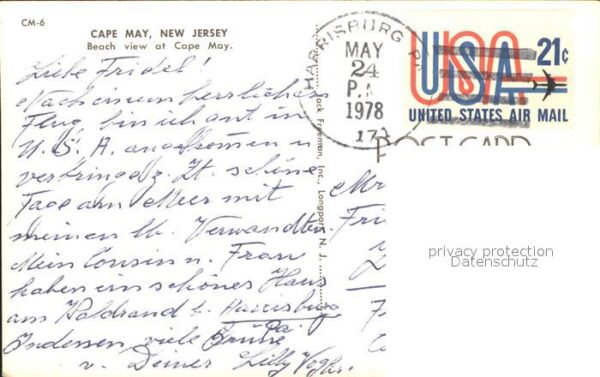 CM-6
CAPE MAY, NEW JERSEY
Beach view at Cape May.
Liebe Fridel!
Nach einem herrlichen
Flug bin ich gut in
U.S.A. angekommen u.
verbringe z. Zt. schöne
Tage am Meer mit
meinen lb. Verwandten
Mein Cousin u. Frau
haben ein schönes Haus
am Waldrand b. Harrisburg
Pa.
Indessen viele Grüße
v. Deiner Lilly
HARRISBURG PA
MAY
24
P.M
1978
171
USA 21¢
UNITED STATES AIR MAIL
POST CARD
Jack Freeman, Inc., Longport, N. J.
privacy protection
Datenschutz